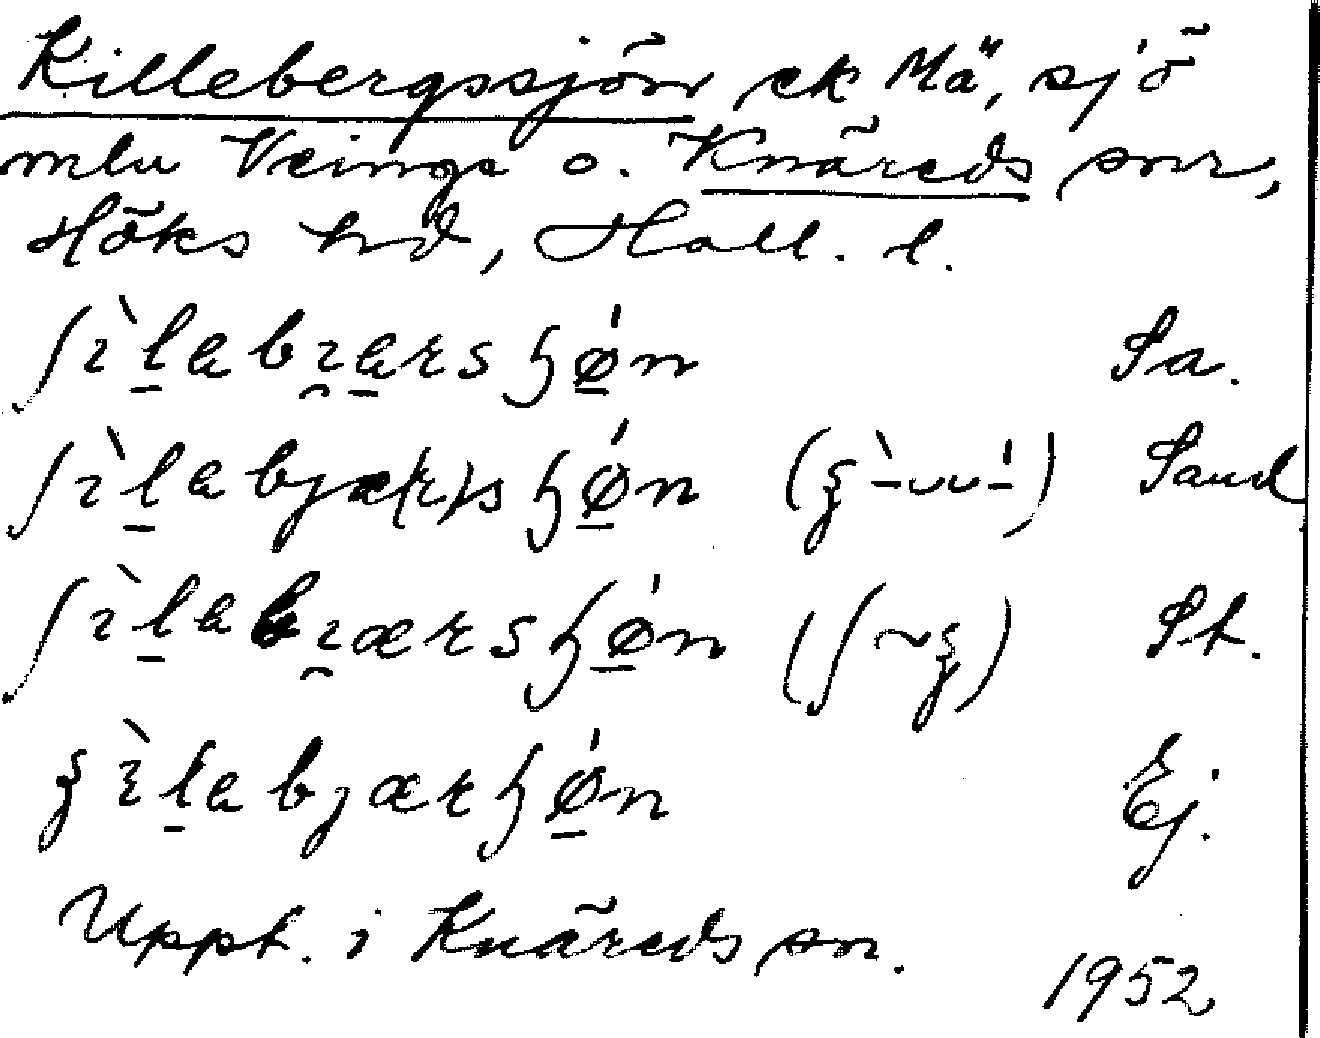 Killebergssjön ek Mä, sjö
mlu Veinge o. Knäreds snr,
Höks hd, Hall. l.
ʃɩ̀labɩ̯arsɧǿn Sa.
ʃɩ̀labjæ(r)sɧǿn (ξ̀-ᴗᴗ-́) Sand
ʃɩ̀labɩ̯ærsɧǿn (ʃ~ξ) St.
ξɩ̀labjærɧǿn Ej.
Uppt. i Knäreds sn.
1952